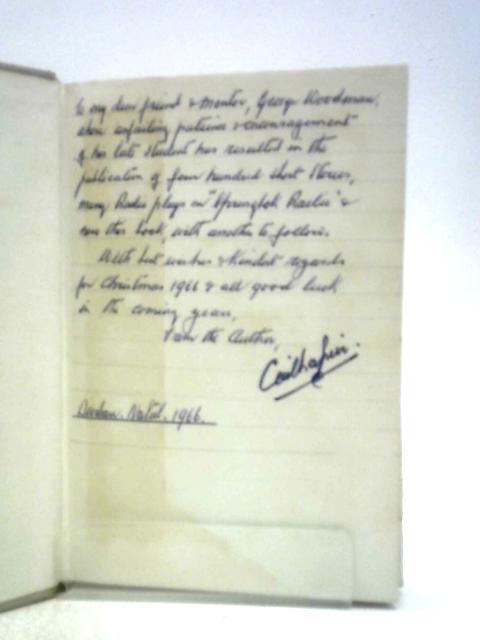 To my dear friend & mentor, George Woodman,
whose unfailing patience & encouragement
of his late student has resulted in the
publication of four hundred short stories,
many Radio plays on "Springbok Radio" &
now this book, with another to follow.
With best wishes & kindest regards
for Christmas 1966 & all good luck
in the coming years,
I am the Author,
Durban. Natal. 1966.